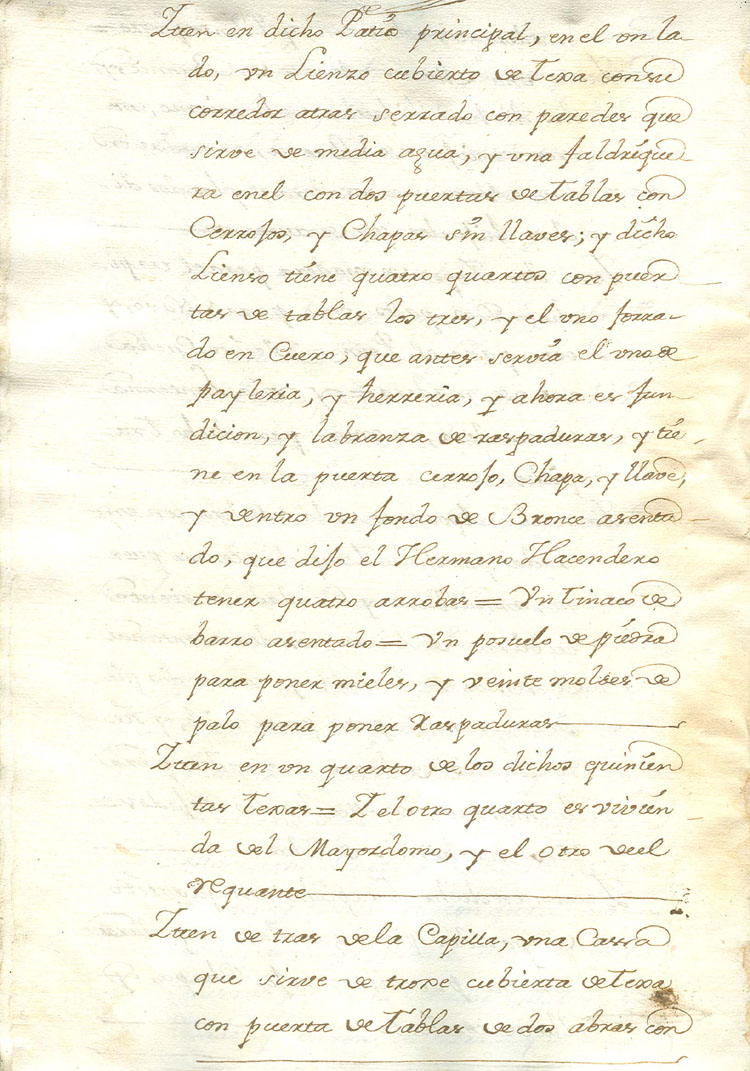 Iten en dicho Patio principal, en el vn la-
do, vn Lienzo cubierto de Texa con su
corredor atras serrado con paredes que
sirve de media agua, y vna faldrique-
ra enel con dos puertas de Tablas con
Cerrojos, y Chapas sin llaves; y dicho
Lienso tiene quatro quartos con puer-
tas de tablas los tres, y el vno forra-
do en Cuero, que antes servia el vno de
payleria, y herreria, y ahora es fun-
dicion, y labranza de raspaduras, y tie-
ne en la puerta cerrojo, Chapa, y llave,
y dentro vn fondo de Bronce asenta-
do, que dijo el Hermano Hacendero
tener quatro arrobas = Vn Tinaco de
barro asentado = Vn posuelo de piedra
para poner mieles, y veinte moldes de
palo para poner Raspaduras
Iten en vn quarto de los dichos quinien-
tas Texas = I el otro quarto es vivien-
da del Mayordomo, y el otro deel
Requante
Iten de tras dela Capilla, vna Cassa
que sirve de troxe cubierta de Texa
con puerta de Tablas de dos abras con